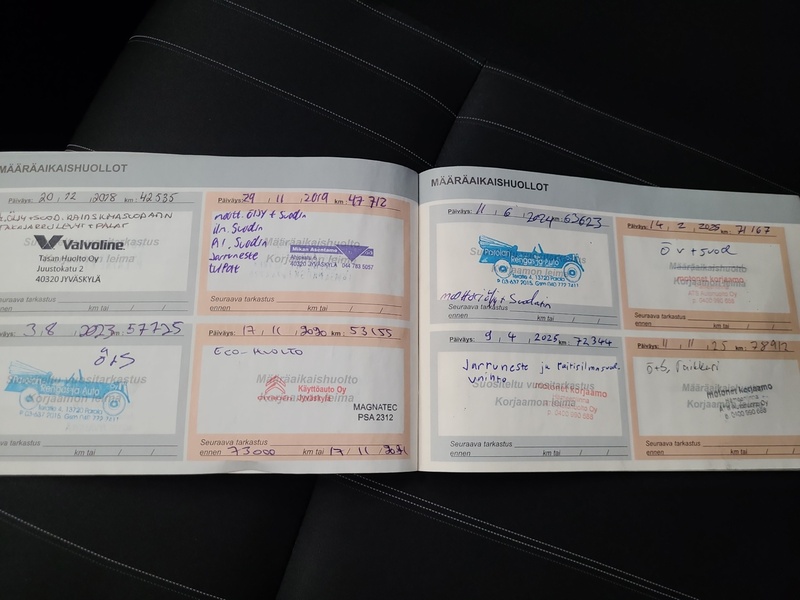 MÄÄRÄAIKAISHUOLLOT
Päiväys: 20 / 12 / 2018 km: 42535
ÖLJY+SUOD. RAITISILMASUODATIN
TAKAJARRULEVYT + PALAT
Valvoline
Tasan Huolto Oy
Juustokatu 2
40320 JYVÄSKYLÄ
Seuraava tarkastus
ennen km tai / /
Päiväys: 29 / 11 / 2019 km: 47 712
moott. öljy + suodin
iln suodin
P.A. suodin
Jarruneste
tulpat
Mikan Autotamo
40320 JYVÄSKYLÄ 044 783 5057
Seuraava tarkastus
ennen km tai / /
Päiväys: 3 / 8 / 2023 km: 57725
Ö+S
Suositeltu tarkastus
Korjaamon leima
Rengas ja Auto
Teratie 4, 13720 Parola
Seuraava tarkastus
ennen km tai / /
Päiväys: 17 / 11 / 2020 km: 53155
ECO-HUOLTO
Määräaikaishuolto
Korjaamon leima
Käyttöauto Oy
Jyväskylä
MAGNATEC
PSA 2312
Seuraava tarkastus
ennen 73000 km tai 17 / 11 / 2021
MÄÄRÄAIKAISHUOLLOT
Päiväys: 11 / 6 / 2024 km: 63623
Parolan
Rengas ja Auto
Teratie 4, 13720 Parola
moottoriöljy + suodatin
Seuraava tarkastus
ennen km tai / /
Päiväys: 14 / 2 / 2025 km: 71167
Ö v + suod
Määräaikaishuolto
Korjaamon leima
Seuraava tarkastus
ennen km tai / /
Päiväys: 9 / 4 / 2025 km: 72344
Jarruneste ja raitisilmasuod.
vaihto
Suositeltu tarkastus
Korjaamon leima
Seuraava tarkastus
ennen km tai / /
Päiväys: 11 / 11 / 25 km: 78912
Ö+S,
Määräaikaishuolto
Korjaamon leima
Motonet korjaamo
Seuraava tarkastus
ennen km tai / /